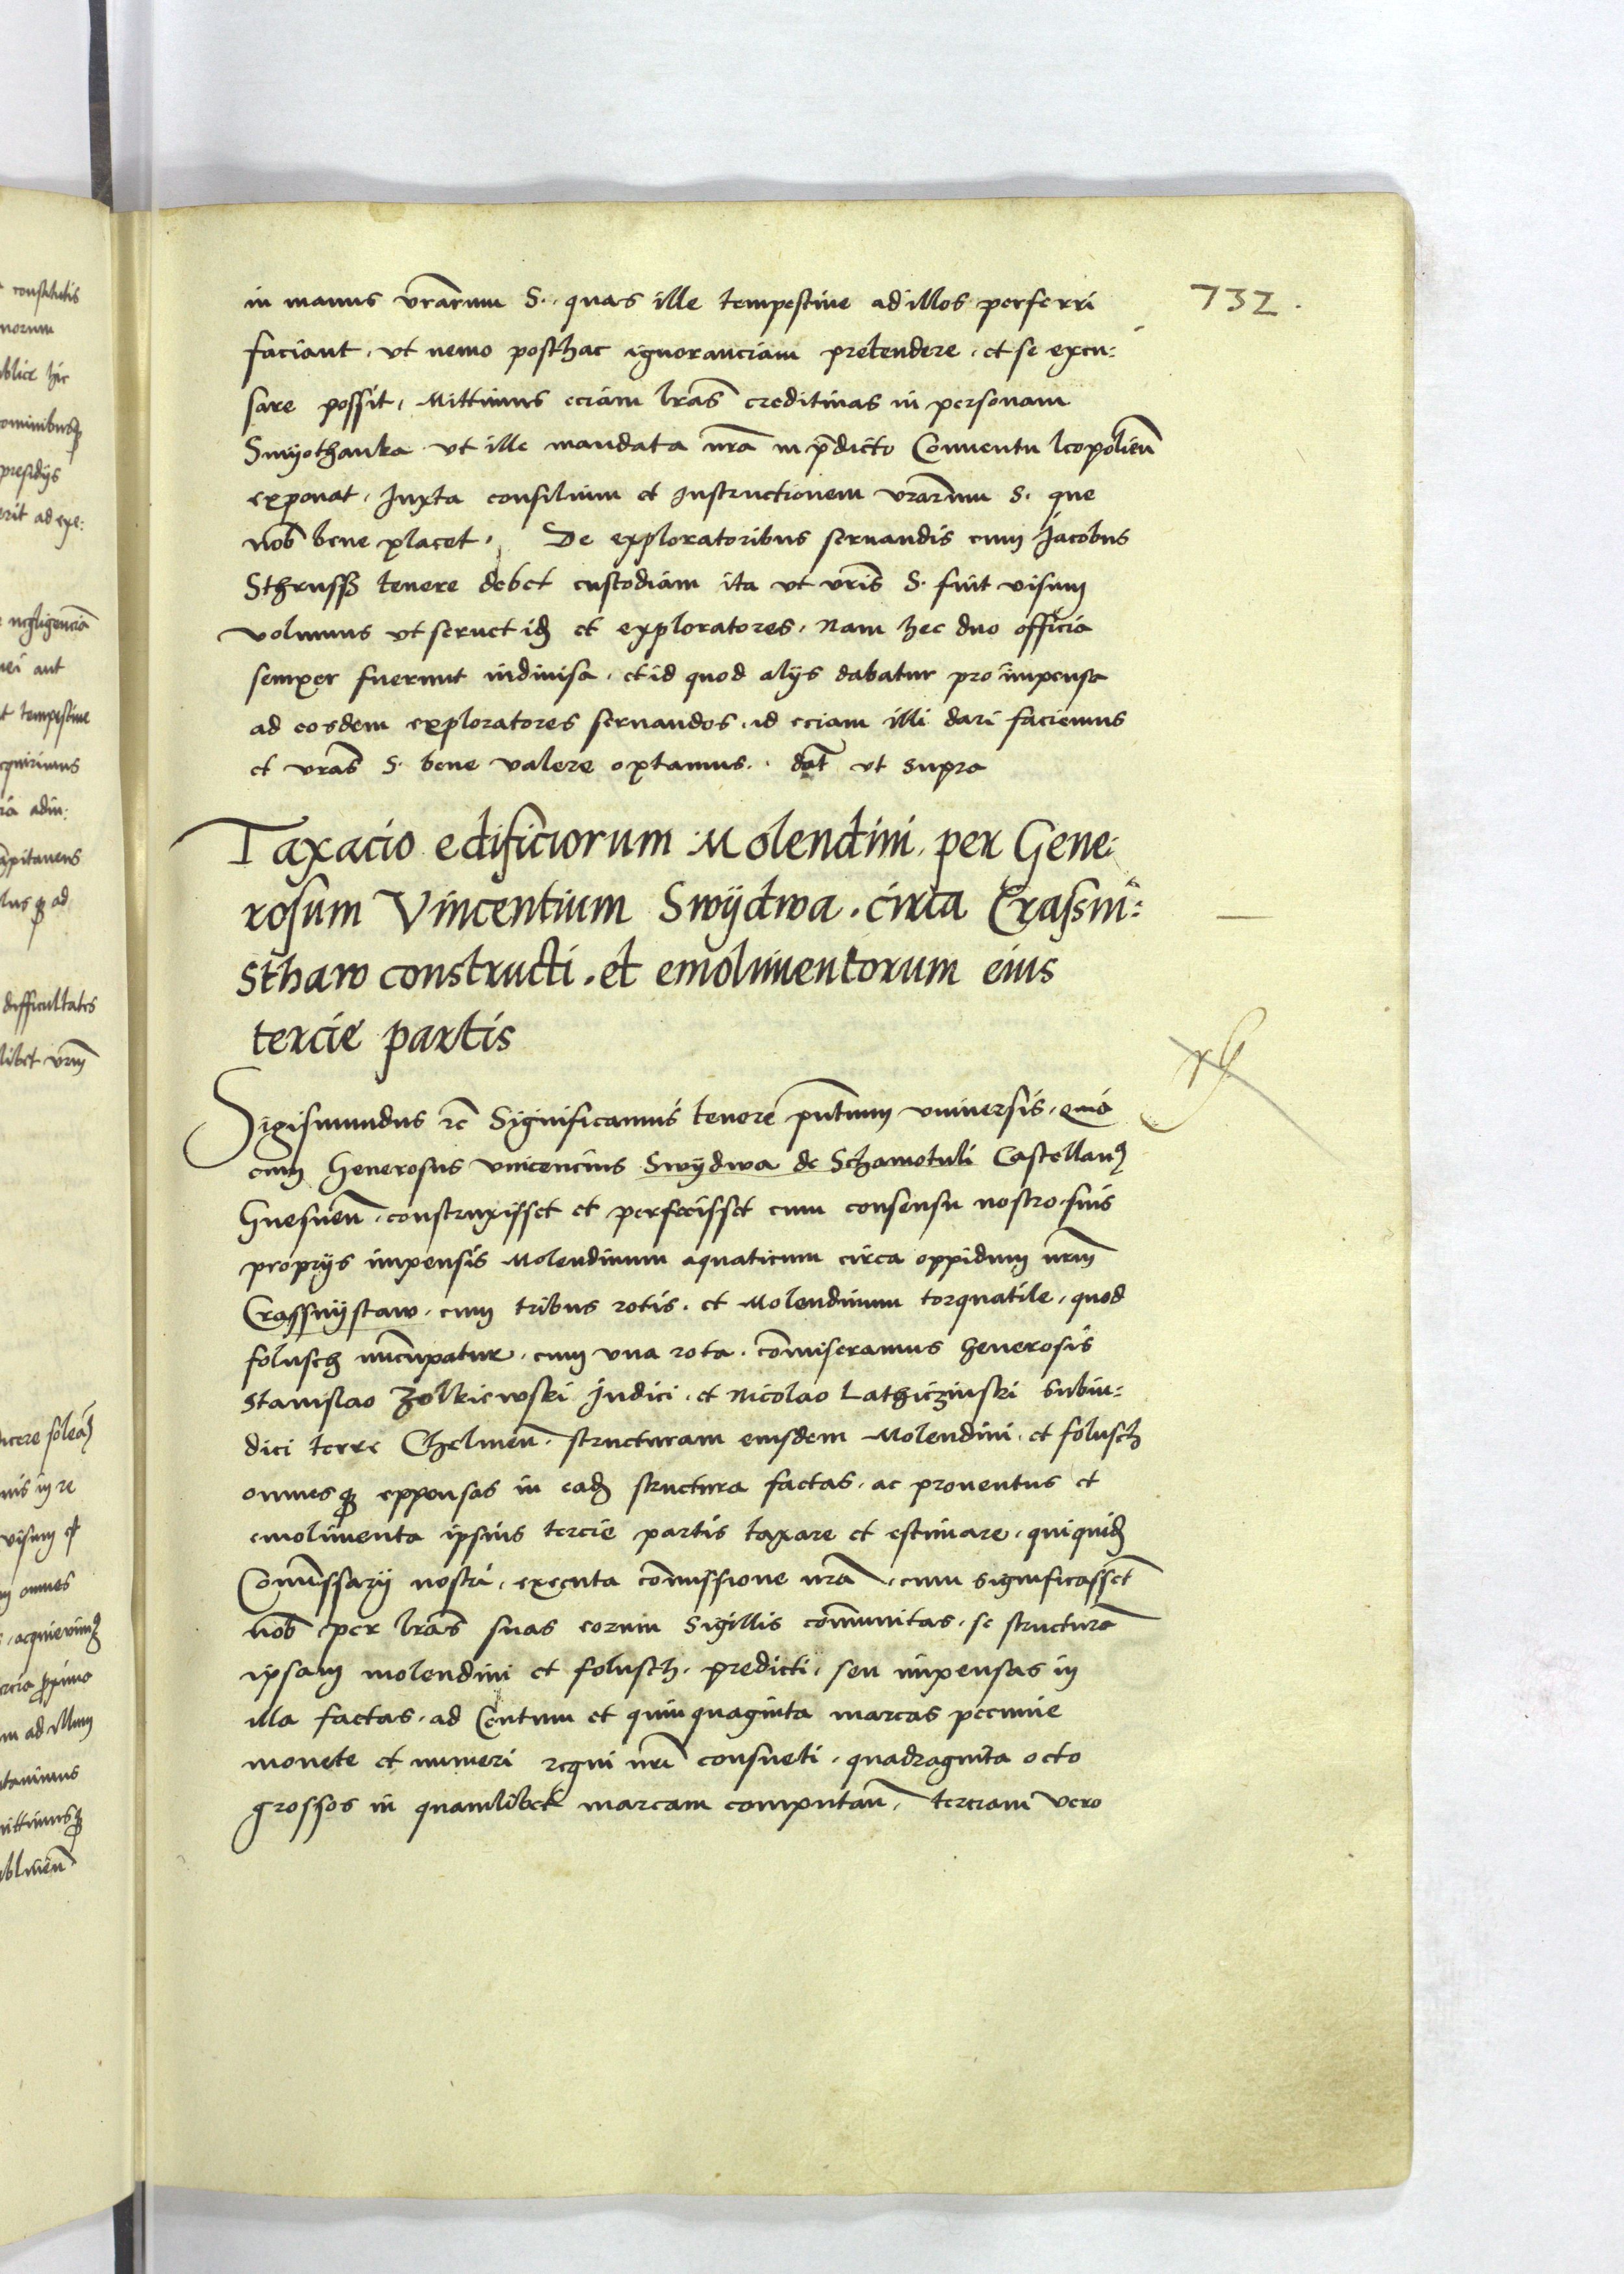 732.
in manus vrarum S. quas ille tempestiue ad illos perferri
faciant, vt nemo posthac ignoranciam pretendere, et se excu:
sare possit, Mittimus eciam lras creditiuas in personam
Swyothanka vt ille mandata nra in pdicto Conuentu leopolien
exponat, Juxta consilium et Instructionem vrarum S. que
nob bene placet, De exploratoribus seruandis cum Jacobus
Sthrussß tenere debet custodiam ita vt vris S. fuit visum
volumus vt seruet id et exploratores, Nam hec duo officia
semper fuerunt indiuisa, et id quod alijs dabatur pro impensa
ad eosdem exploratores seruandos, id eciam illi dari faciemus
et vras S. bene valere optamus. dat vt supra
Taxacio edificiorum Molendini, per Gene:
rosum Vincentium Swydwa. circa Crassni:
sthaw constructi. et emolumentorum eius
tercie partis
Sigismundus rc Significamus tenore pntium vniuersis, Quia
cum Generosus vincencius Swydwa de Schamotuli Castellanus
Gnesnen, construxisset et perfecisset cum consensu nostro suis
proprijs impensis Molendinum aquaticum circa oppidum nrm
Crassnystaw, cum tribus rotis, et Molendinum torquatile, quod
folusch nuncupatur, cum vna rota, comiseramus Generosis
Stanislao Zolkiewski Judici, et Nicolao Lathiczinski Subiu:
dici terre Chelmen, structuram eiusdem Molendini, et folusch
omnesq expensas in ead structura factas, ac prouentus et
emolumenta ipsius tercie partis taxare et estimare, quiquid
Comissarij nostri, executa comissione nra, cum significasset
nob per lras suas eorum Sigillis communitas, se structura
ipsam molendini et folusch, predicti, seu impensas in
illa factas, ad Centum et quinquaginta marcas pecunie
monete et numeri regni nri consueti, quadraginta octo
grossos in quamlibet marcam computan, terciam vero